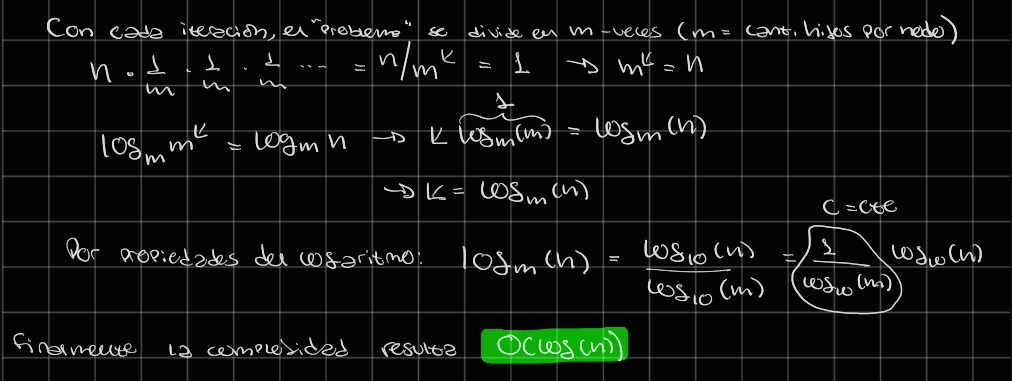 Con cada iteración, el "problema" se divide en m-veces (m = cant. hijos por nodo)
n · 1/m · 1/m · 1/m ... = n/m^k = 1 → m^k = n
1
log_m m^k = log_m n → k log_m(m) = log_m(n)
→ k = log_m(n)
C = cte
Por propiedades del logaritmo: log_m(n) = log_10(n) / log_10(m) = 1/log_10(m) log_10(n)
Finalmente la complejidad resulta O(log(n))